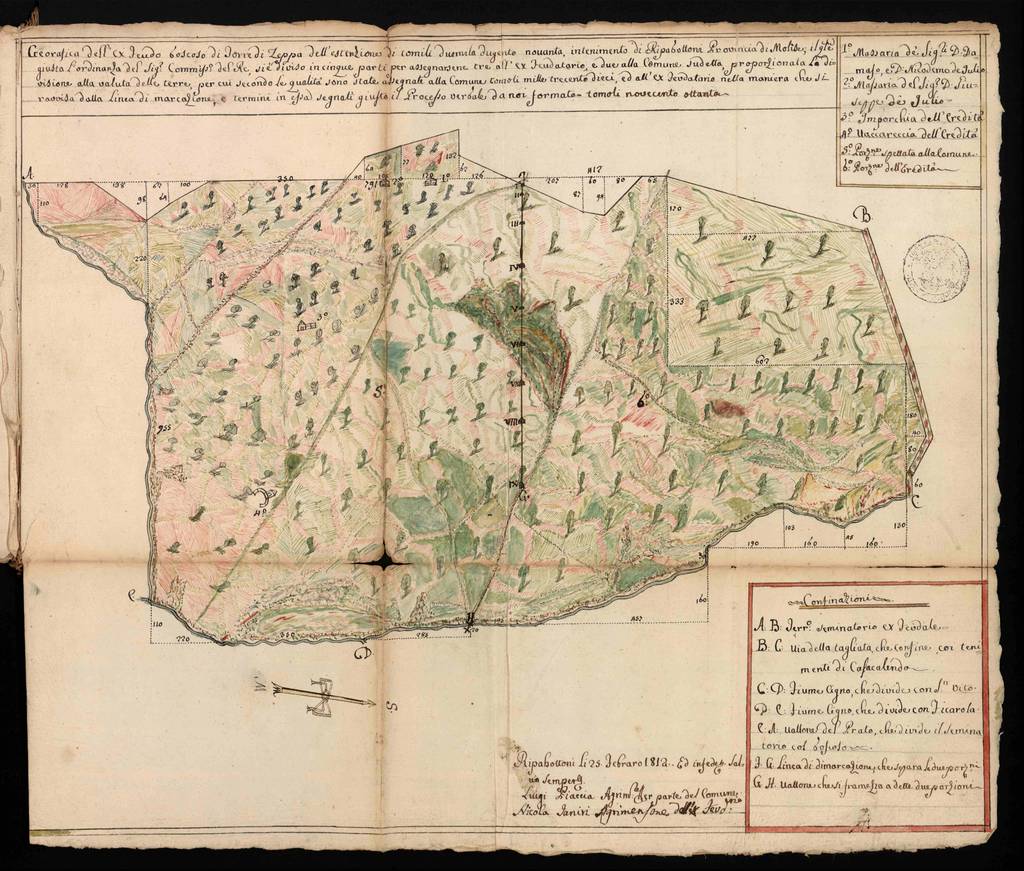 Geografica dell'ex Feudo boscoso di Torre di Zeppa dell'estenzione di tomili duemila dugento novanta, intenimento di Ripabottoni Provincia di Molise, il qle
giusta l'ordinanza del Sigr Commissº del Re, si è diviso in cinque parti per assegnarsene tre all'ex Feudatario, e due alla Comune sudetta, proporzionata la di=
visione alla valuta delle terre, per cui secondo le qualità sono state assegnate alla Comune tomoli mille trecento dieci, ed all'ex Feudatario nella maniera che si
ravvisa dalla Linea di marcazione, e termini in essa segnati giusto il Processo verbale da noi formato - tomoli novecento ottanta
1º Massaria de' Sigri D. Da
maso, e D. Nicodemo de Julio
2º Massaria del Sigr D. Giu=
seppe de Julio
3º Imporchia dell'Eredità
4º Vaccareccia dell'Eredità
5º Porzne spettata alla Comune
6º Porzne dell'Eredità
A
B
C
D
E
110
178
158
67
100
350
98
220
955
117
207
60
80
65
120
333
877
607
180
40
80
60
130
160
103
190
160
457
284
220
110
3º
4º
5º
6º
III
IV
V
M
S
Confinazioni
A. B: Terrº seminatorio ex Feudale
B: C: Via della tagliata, che confine coi teni
menti di Casacalenda
C: D: Fiume Cigno, che divide con Sn Vito
D: E: Fiume Cigno, che divide con Ficarola
E: A: Vallone del Prato, che divide il semina
torio col boscoso
F: G: Linea di dimarcazione, che separa le due porzni
G: H: Vallone che si framezza a dette due porzione
Ripabottoni Li 25. Febraro 1812. Ed in fede
Luigi Piacca Agrimre per parte del Comune
Nicola Janiri Agrimensore dell'ex Feudº